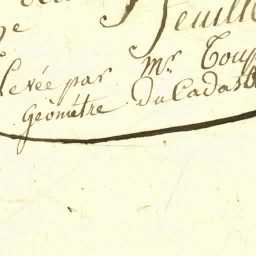 Feuille
Levée par Mr Toup
Géométre du Cadas